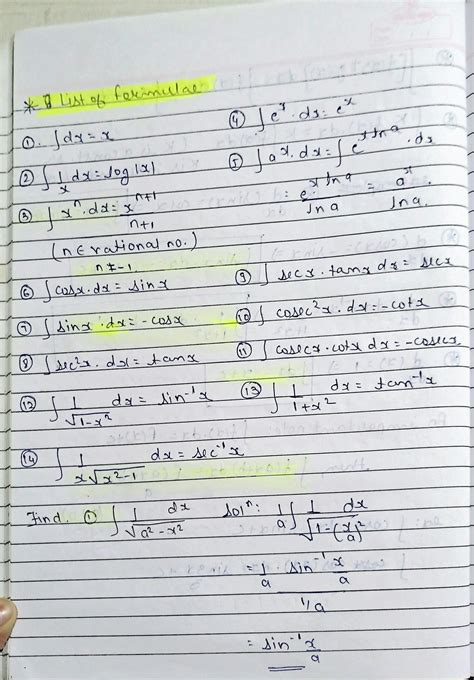 * List of formulae
① ∫dx = x
④ ∫eˣ · dx = eˣ
② ∫1/x dx = log|x|
⑤ ∫aˣ · dx = ∫e^(x ln a) · dx
= e^(x ln a)/ln a = aˣ/ln a
③ ∫xⁿ · dx = xⁿ⁺¹/n+1
(n ∈ rational no.)
n ≠ -1
⑥ ∫cosx · dx = sinx
⑨ ∫secx · tanx dx = secx
⑦ ∫sinx · dx = -cosx
⑩ ∫cosec²x · dx = -cotx
⑧ ∫sec²x · dx = tanx
⑪ ∫cosecx · cotx dx = -cosecx
⑫ ∫1/√(1-x²) dx = sin⁻¹x
⑬ ∫1/(1+x²) dx = tan⁻¹x
⑭ ∫1/(x√(x²-1)) dx = sec⁻¹x
Find. ① ∫1/√(a²-x²) dx
Solⁿ: 1/a ∫1/√(1-(x/a)²) dx
= 1/a sin⁻¹ x/a
1/a
= sin⁻¹ x/a